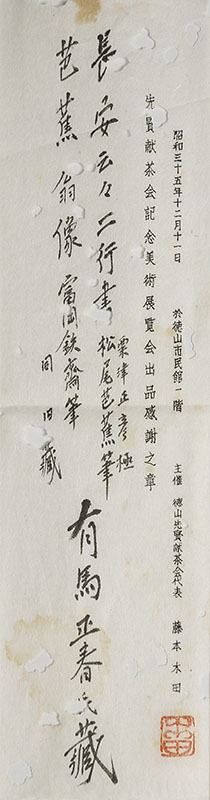 昭和三十五年十二月十一日　於徳山市民館一階　主催　徳山先賢献茶会代表　藤本木田
先賢献茶会記念美術展覧会出品感謝之章
長安云々二行書　栗津正彦極　松尾芭蕉筆
芭蕉翁像　富岡鉄斎筆
同旧蔵
有馬正春氏蔵
木田